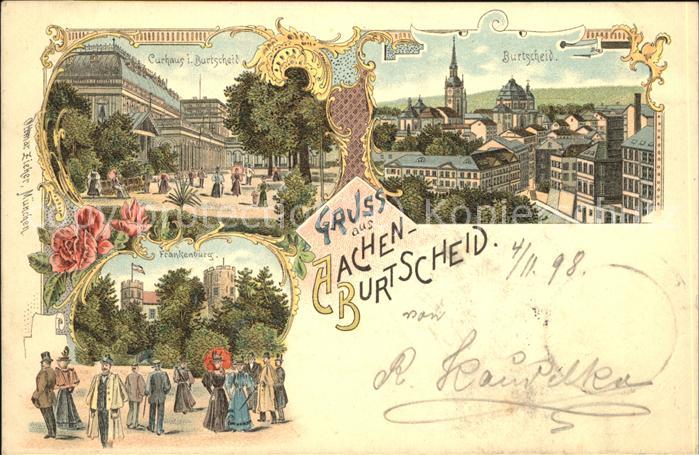 Curhaus i. Burtscheid
Burtscheid.
Ottmar Zieher, München.
GRUSS
aus
AACHEN-
BURTSCHEID.
4/11. 98.
von
Frankenburg.